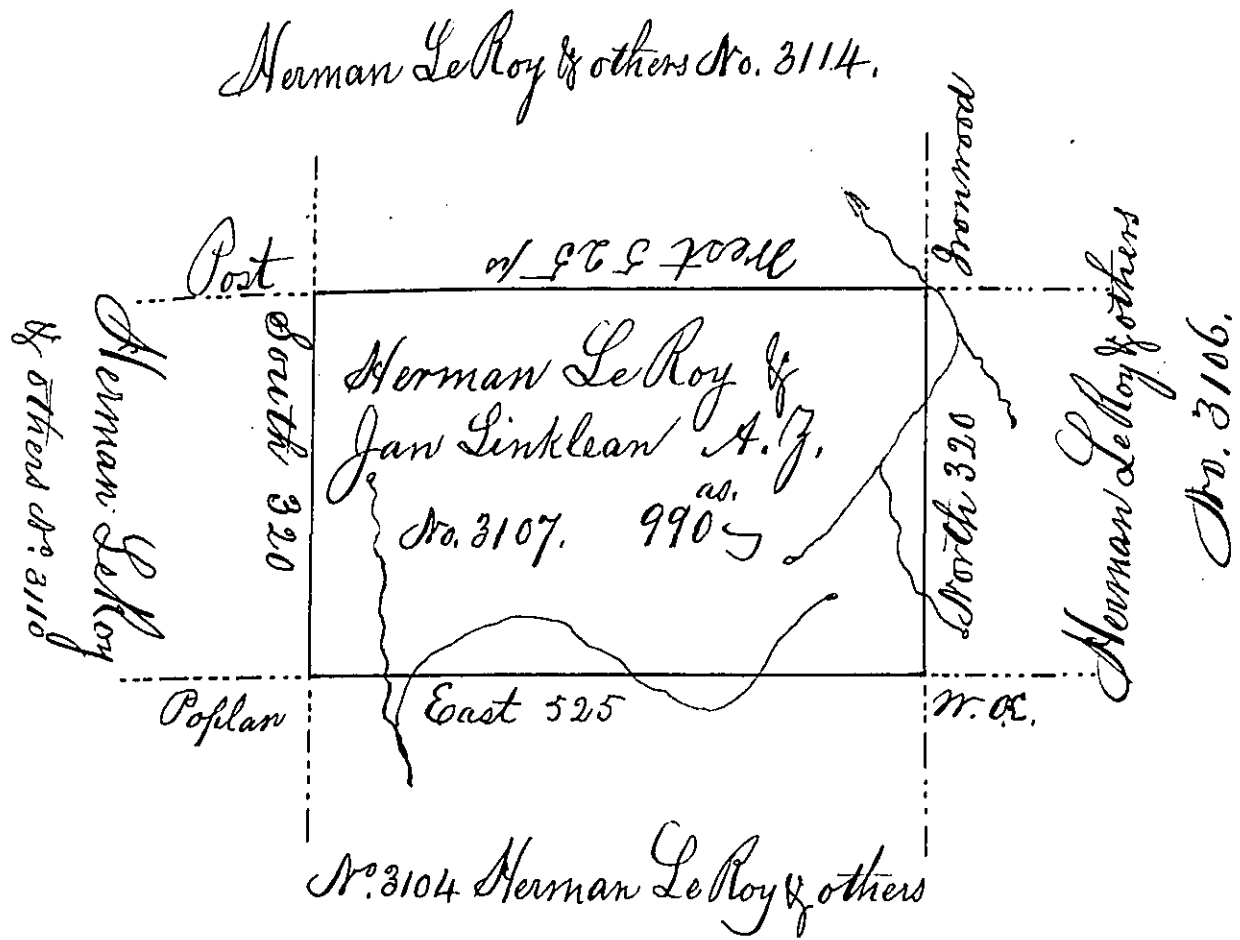 Herman Le Roy & others No. 3114.
Ironwood
Post
West 525 /w
Herman Le Roy
& others No. 3110
South 320
Herman Le Roy &
Jan Linklean A. Z.
as.
No. 3107. 990
North 320
Herman Le Roy & others
No. 3106.
Poplan
East 525
W. O.
No. 3104 Herman Le Roy & others